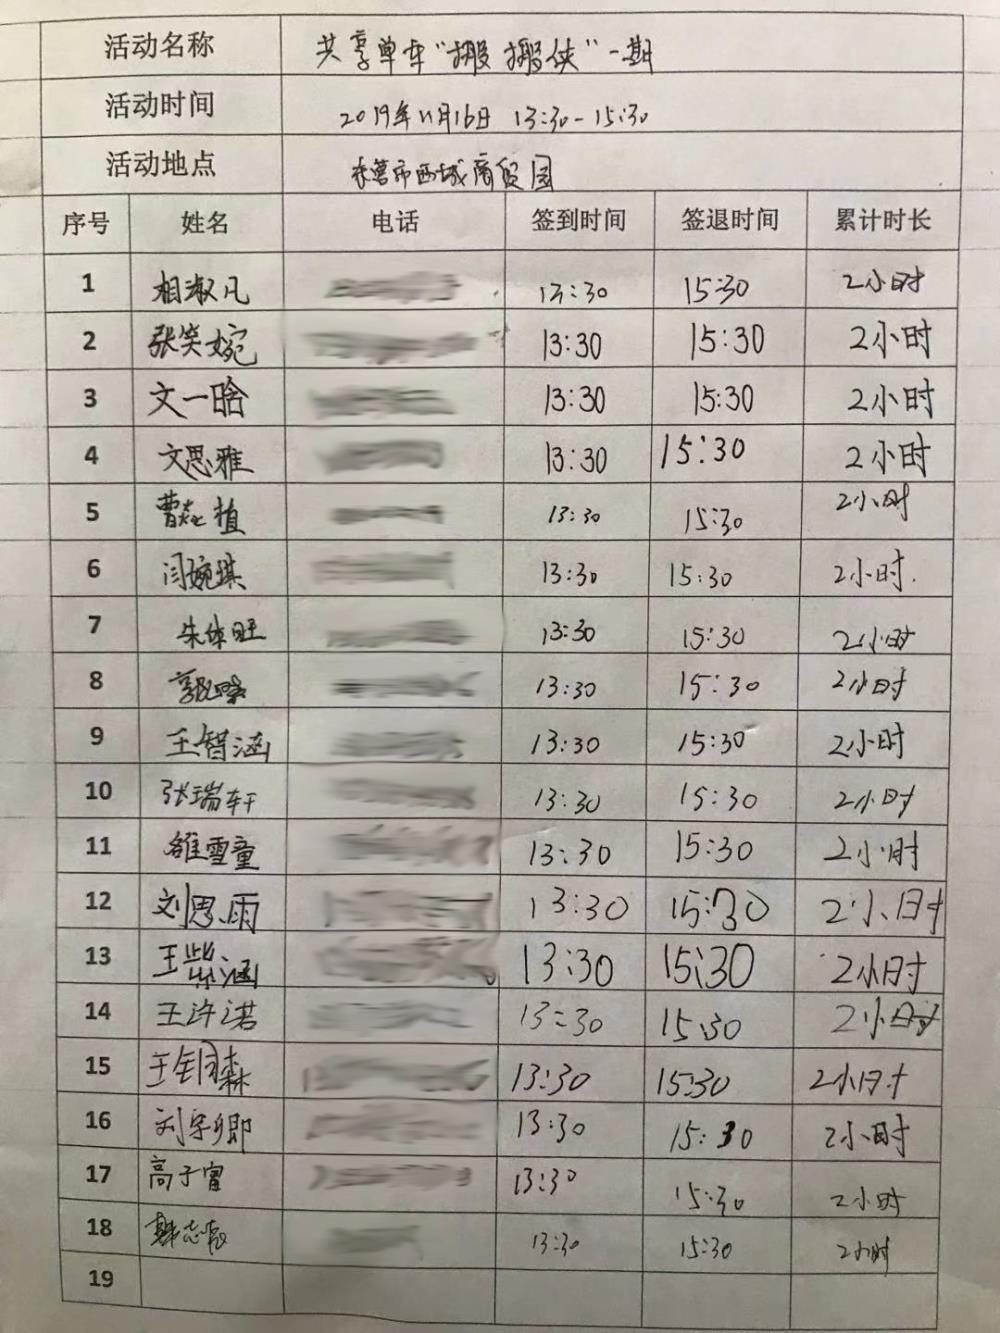 活动名称 共享单车“搬搬侠”一期
活动时间 2019年11月16日 13:30-15:30
活动地点 东营市西城商贸园
序号 姓名 电话 签到时间 签退时间 累计时长
1 相淑凡 13:30 15:30 2小时
2 张笑婉 13:30 15:30 2小时
3 文一晗 13:30 15:30 2小时
4 文思雅 13:30 15:30 2小时
5 曹 植 13:30 15:30 2小时
6 闫婉琪 13:30 15:30 2小时.
7 朱 旺 13:30 15:30 2小时
8 郭 13:30 15:30 2小时
9 王智涵 13:30 15:30 2小时
10 张瑞轩 13:30 15:30 2小时
11 雒雪童 13:30 15:30 2小时
12 刘思雨 13:30 15:30 2小时
13 王紫涵 13:30 15:30 2小时
14 王许诺 13:30 15:30 2小时
15 王钶森 13:30 15:30 2小时
16 刘宇卿 13:30 15:30 2小时
17 高子富 13:30 15:30 2小时
18 韩志 13:30 15:30 2小时
19